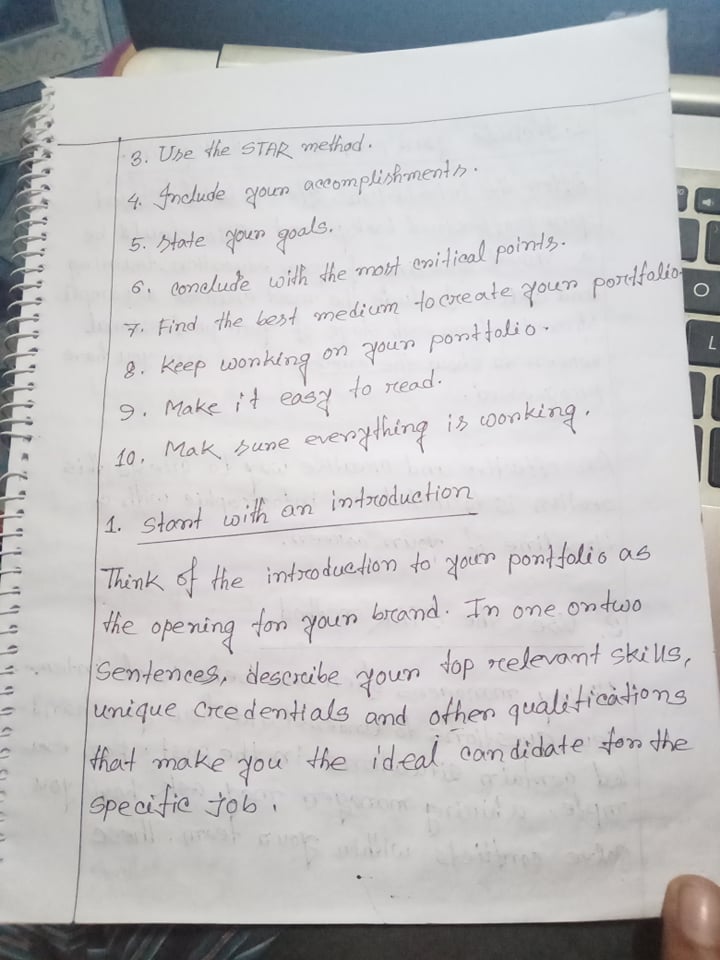 3. Use the STAR method.
4. Include your accomplishments.
5. State your goals.
6. conclude with the most critical points.
7. Find the best medium to create your portfolio.
8. Keep working on your portfolio.
9. Make it easy to read.
10. Mak sure everything is working.
1. Start with an introduction
Think of the introduction to your portfolio as
the opening for your brand. In one or two
Sentences, describe your top relevant skills,
unique credentials and other qualifications
that make you the ideal candidate for the
specific job.
L